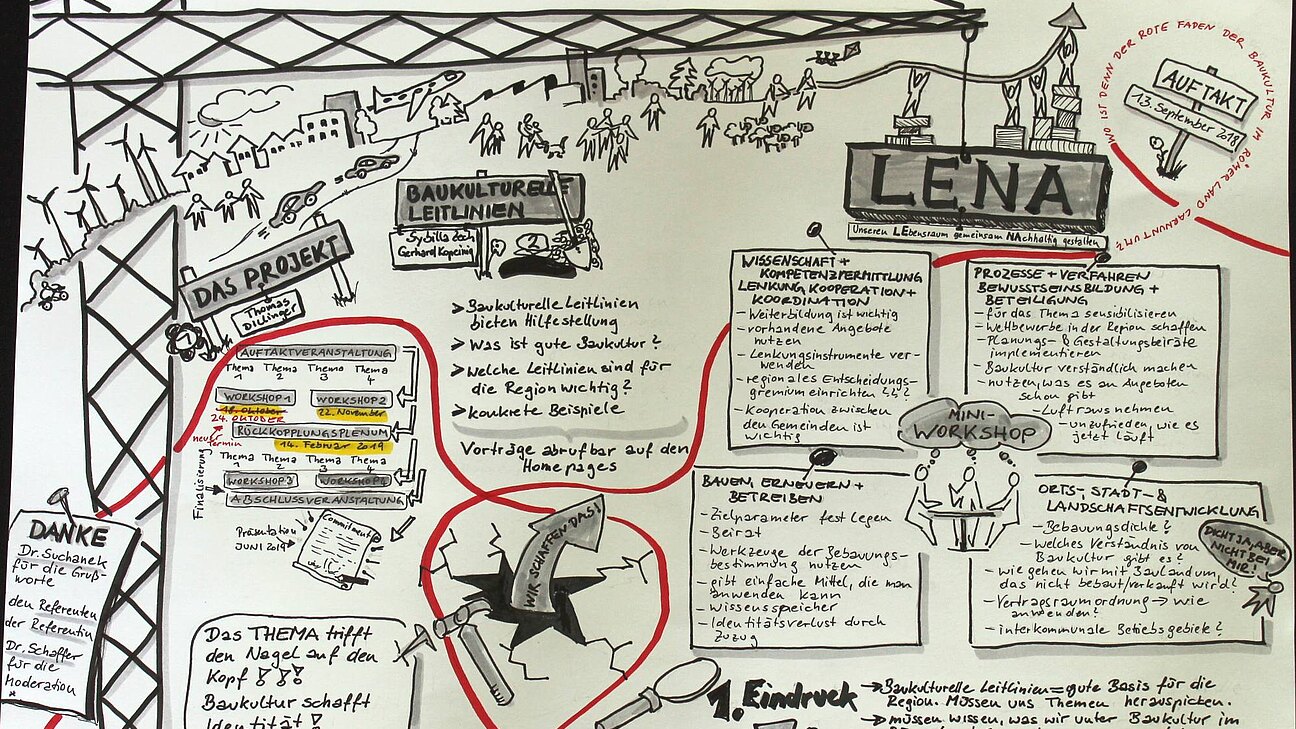 WO IST DENN DER ROTE FADEN DER BAUKULTUR IM RÖMERLAND CARNUNTUM?
AUFTAKT
13. September 2018
LENA
Unseren LEbensraum gemeinsam NAchhaltig gestalten
BAUKULTURELLE
LEITLINIEN
Sybilla
Gerhard
2
DAS PROJEKT
Thomas
Dillinger
1
AUFTAKTVERANSTALTUNG
Thema Thema Thema Thema
1 2 3 4
WORKSHOP 1 WORKSHOP 2
18. Oktober 22. November
24. OKTOBER
neuer Termin
RÜCKKOPPLUNGSPLENUM
14. Februar 2019
Thema Thema Thema Thema
1 2 3 4
WORKSHOP 3 WORKSHOP 4
ABSCHLUSSVERANSTALTUNG
Finalisierung
Präsentation
JUNI 2019
Commitment
> Baukulturelle Leitlinien
bieten Hilfestellung
> Was ist gute Baukultur?
> welche Leitlinien sind für
die Region wichtig?
> konkrete Beispiele
Vorträge abrufbar auf den
Homepages
WISSENSCHAFT +
KOMPETENZVERMITTLUNG
LENKUNG KOOPERATION +
KOORDINATION
- Weiterbildung ist wichtig
- vorhandene Angebote
nutzen
- Lenkungsinstrumente ver-
wenden
- regionales Entscheidungs-
gremium einrichten
- Kooperation zwischen
den Gemeinden ist
wichtig
PROZESSE + VERFAHREN
BEWUSSTSEINSBILDUNG +
BETEILIGUNG
- für das Thema sensibilisieren
= Wettbewerbe in der Region schaffen
- Planungs- & Gestaltungsbeiräte
implementieren
- Baukultur verständlich machen
- nutzen, was es an Angeboten
schon gibt
- Luft raus nehmen
- unzufrieden, wie es
jetzt läuft
MINI-
WORKSHOP
BAUEN, ERNEUERN +
BETREIBEN
- Zielparameter fest legen
- Beirat
- Werkzeuge der Bebauungs-
bestimmung nutzen
- gibt einfache Mittel, die man
anwenden kann
- Wissensspeicher
- Identitätsverlust durch
Zuzug
ORTS-, STADT- &
LANDSCHAFTSENTWICKLUNG
- Bebauungsdichte?
- welches Verständnis von
Baukultur gibt es?
- wie gehen wir mit Bauland um,
das nicht bebaut/verkauft wird?
- Vertragsraumordnung → wie
anwenden?
- interkommunale Betriebsgebiete?
DICHT JA, ABER
NICHT BEI
MIR!
DANKE
Dr. Suchanek
für die Gruß-
worte
den Referenten
der Referentin
Dr. Schaffer
für die
Moderation
WIR SCHAFFEN DAS!
Das THEMA trifft
den Nagel auf den
Kopf !!!
Baukultur schafft
Identität!
1. Eindruck
→ Baukulturelle Leitlinien = gute Basis für die
Region. Müssen uns Themen herauspicken.
→ müssen wissen, was wir unter Baukultur im